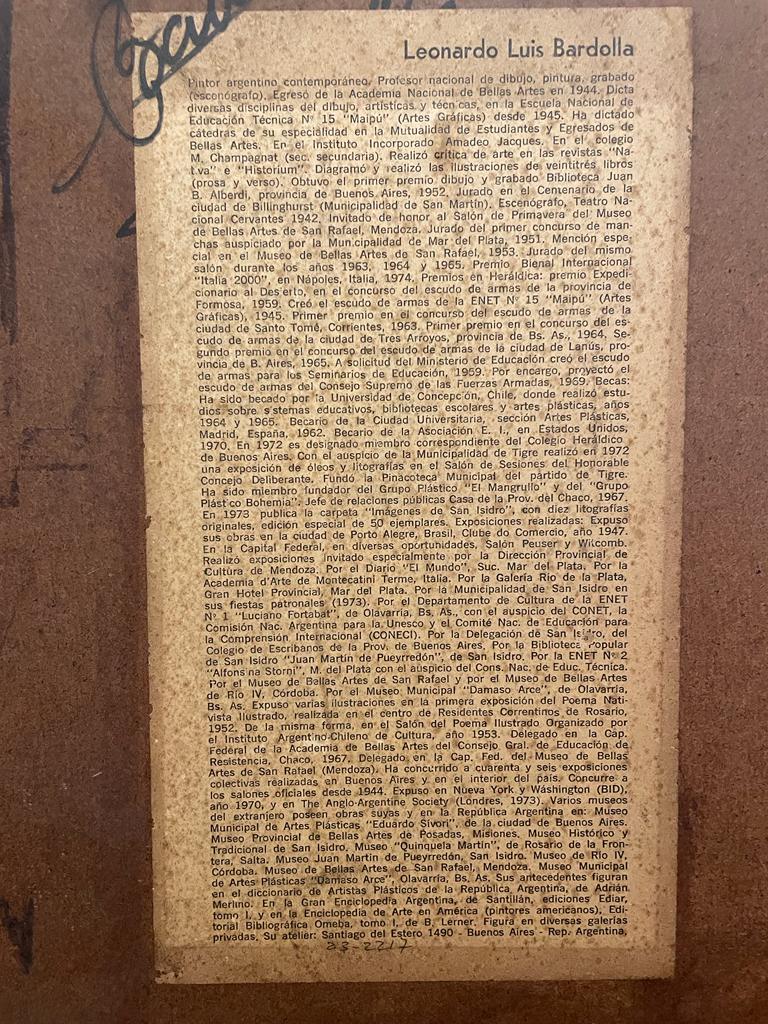 Leonardo Luis Bardolla
Pintor argentino contemporáneo. Profesor nacional de dibujo, pintura, grabado
(esconógrafo). Egresó de la Academia Nacional de Bellas Artes en 1944. Dicta
diversas disciplinas del dibujo, artísticas y técnicas, en la Escuela Nacional de
Educación Técnica Nº 15 "Maipú" (Artes Gráficas) desde 1945. Ha dictado
cátedras de su especialidad en la Mutualidad de Estudiantes y Egresados de
Bellas Artes. En el Instituto Incorporado Amadeo Jacques. En el colegio
M. Champagnat (sec. secundaria). Realizó crítica de arte en las revistas "Na-
t.va" e "Historium". Diagramó y realizó las ilustraciones de veintitrés libros
(prosa y verso). Obtuvo el primer premio dibujo y grabado Biblioteca Juan
B. Alberdi, provincia de Buenos Aires, 1952. Jurado en el Centenario de la
ciudad de Billinghurst (Municipalidad de San Martín). Escenógrafo, Teatro Na-
cional Cervantes 1942. Invitado de honor al Salón de Primavera del Museo
de Bellas Artes de San Rafael, Mendoza. Jurado del primer concurso de man-
chas auspiciado por la Municipalidad de Mar del Plata, 1951. Mención espe-
cial en el Museo de Bellas Artes de San Rafael, 1953. Jurado del mismo
salón durante los años 1963, 1964 y 1965. Premio Bienal Internacional
"Italia 2000", en Nápoles, Italia, 1974. Premios en Heráldica: premio Expedi-
cionario al Desierto, en el concurso del escudo de armas de la provincia de
Formosa, 1959. Creó el escudo de armas de la ENET Nº 15 "Maipú" (Artes
Gráficas), 1945. Primer premio en el concurso del escudo de armas de la
ciudad de Santo Tomé, Corrientes, 1963. Primer premio en el concurso del es-
cudo de armas de la ciudad de Tres Arroyos, provincia de Bs. As., 1964. Se-
gundo premio en el concurso del escudo de armas de la ciudad de Lanús, pro-
vincia de B. Aires, 1965. A solicitud del Ministerio de Educación creó el escudo
de armas para los Seminarios de Educación, 1959. Por encargo, proyectó el
escudo de armas del Consejo Supremo de las Fuerzas Armadas, 1969. Becas:
Ha sido becado por la Universidad de Concepción, Chile, donde realizó estu-
dios sobre sistemas educativos, bibliotecas escolares y artes plásticas, años
1964 y 1965. Becario de la Ciudad Universitaria, sección Artes Plásticas,
Madrid, España, 1962. Becario de la Asociación E. I., en Estados Unidos,
1970. En 1972 es designado miembro correspondiente del Colegio Heráldico
de Buenos Aires. Con el auspicio de la Municipalidad de Tigre realizó en 1972
una exposición de óleos y litografías en el Salón de Sesiones del Honorable
Concejo Deliberante. Fundó la Pinacoteca Municipal del partido de Tigre.
Ha sido miembro fundador del Grupo Plástico "El Mangrullo" y del "Grupo
Plástico Bohemia". Jefe de relaciones públicas Casa de la Prov. del Chaco, 1967.
En 1973 publica la carpeta "Imágenes de San Isidro", con diez litografías
originales, edición especial de 50 ejemplares. Exposiciones realizadas: Expuso
sus obras en la ciudad de Porto Alegre, Brasil, Clube do Comercio, año 1947.
En la Capital Federal, en diversas oportunidades, Salón Peuser y Witcomb.
Realizó exposiciones invitado especialmente por la Dirección Provincial de
Cultura de Mendoza. Por el Diario "El Mundo", Suc. Mar del Plata. Por la
Academia d'Arte de Montecatini Terme, Italia. Por la Galería Río de la Plata,
Gran Hotel Provincial, Mar del Plata. Por la Municipalidad de San Isidro en
sus fiestas patronales (1973). Por el Departamento de Cultura de la ENET
Nº 1 "Luciano Fortabat", de Olavarría, Bs. As., con el auspicio del CONET, la
Comisión Nac. Argentina para la Unesco y el Comité Nac. de Educación para
la Comprensión Internacional (CONECI). Por la Delegación de San Isidro, del
Colegio de Escribanos de la Prov. de Buenos Aires. Por la Biblioteca Popular
de San Isidro "Juan Martín de Pueyrredón", de San Isidro. Por la ENET Nº 2
"Alfonsina Storni", M. del Plata con el auspicio del Cons. Nac. de Educ. Técnica.
Por el Museo de Bellas Artes de San Rafael y por el Museo de Bellas Artes
de Río IV, Córdoba. Por el Museo Municipal "Damaso Arce", de Olavarría,
Bs. As. Expuso varias ilustraciones en la primera exposición del Poema Nati-
vista Ilustrado, realizada en el centro de Residentes Correntinos de Rosario,
1952. De la misma forma, en el Salón del Poema Ilustrado Organizado por
el Instituto Argentino-Chileno de Cultura, año 1953. Delegado en la Cap.
Federal de la Academia de Bellas Artes del Consejo Gral. de Educación de
Resistencia, Chaco, 1967. Delegado en la Cap. Fed. del Museo de Bellas
Artes de San Rafael (Mendoza). Ha concurrido a cuarenta y seis exposiciones
colectivas realizadas en Buenos Aires y en el interior del país. Concurre a
los salones oficiales desde 1944. Expuso en Nueva York y Wáshington (BID),
año 1970, y en The Anglo-Argentine Society (Londres, 1973). Varios museos
del extranjero poseen obras suyas y en la República Argentina en: Museo
Municipal de Artes Plásticas "Eduardo Sívori", de la ciudad de Buenos Aires.
Museo Provincial de Bellas Artes de Posadas, Misiones. Museo Histórico y
Tradicional de San Isidro. Museo "Quinquela Martín", de Rosario de la Fron-
tera, Salta. Museo Juan Martín de Pueyrredón, San Isidro. Museo de Río IV,
Córdoba. Museo de Bellas Artes de San Rafael, Mendoza. Museo Municipal
de Artes Plásticas "Damaso Arce", Olavarría, Bs. As. Sus antecedentes figuran
en el diccionario de Artistas Plásticos de la República Argentina, de Adrián
Merlino. En la Gran Enciclopedia Argentina, de Santillán, ediciones Ediar,
tomo I, y en la Enciclopedia de Arte en América (pintores americanos). Edi-
torial Bibliográfica Omeba, tomo I, de B. Lerner. Figura en diversas galerías
privadas. Su atelier: Santiago del Estero 1490 - Buenos Aires - Rep. Argentina.
23-2217